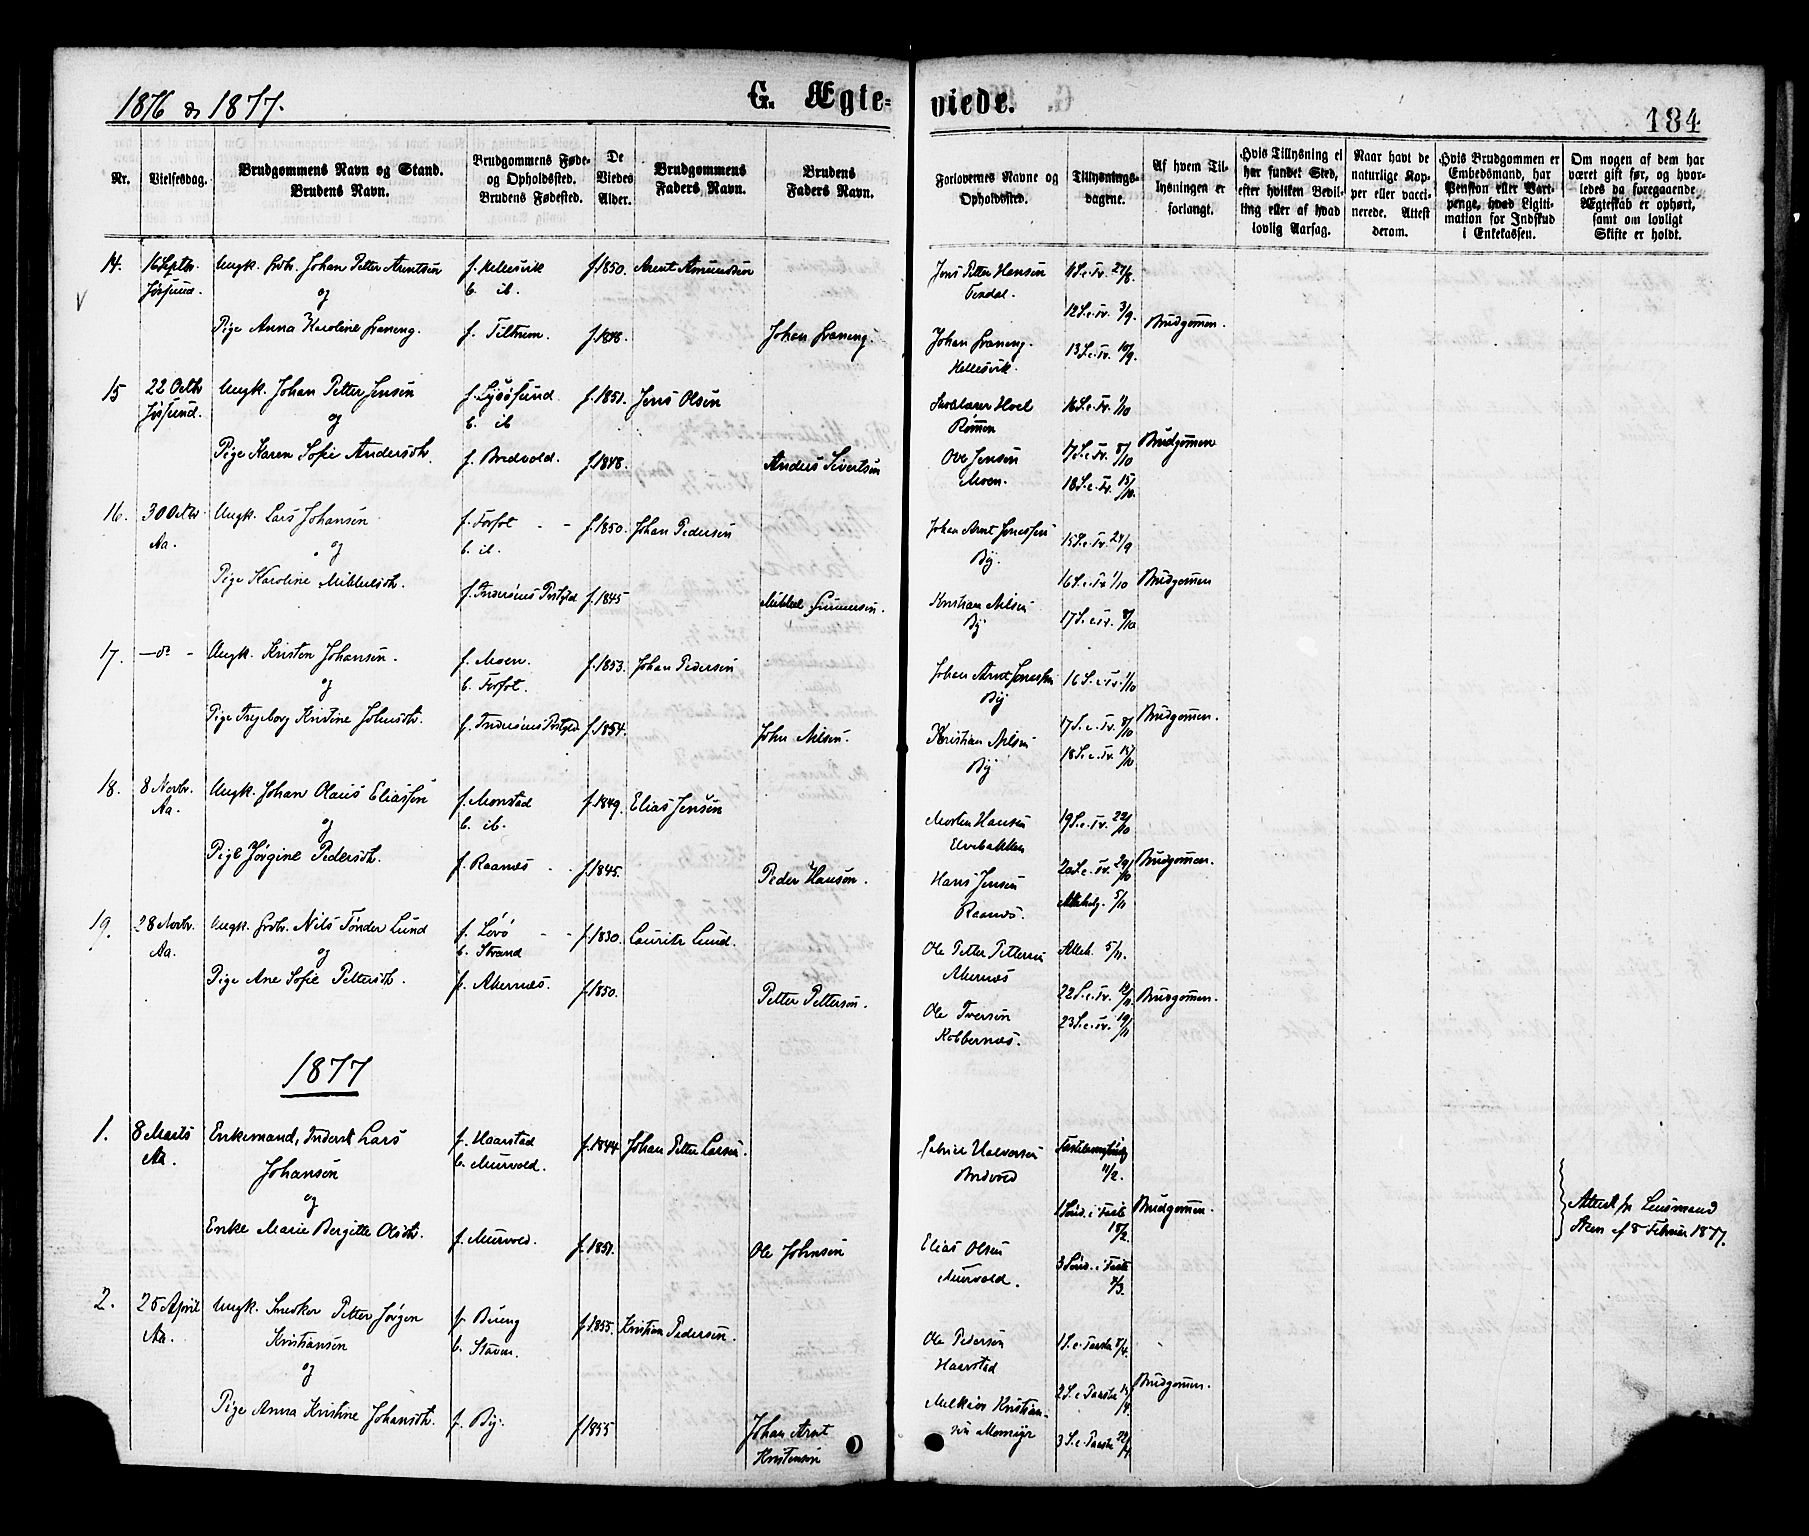 1876 & 1877.
G. Ægte-
viede.
184
Nr.
Vielsesdag.
Brudgommens Navn og Stand.
Brudens Navn.
Brudgommens Føde-
og Opholdssted.
Brudens Fødested.
De
Viedes
Alder.
Brudgommens
Faders Navn.
Brudens
Faders Navn.
Forlovernes Navne og
Opholdssted.
Tillysnings-
dagene.
Af hvem Til-
lysningen er
forlangt.
Hvis Tillysning ei
har fundet Sted,
efter hvilken Bevil-
ling eller af hvad
lovlig Aarsag.
Naar havt de
naturlige Kop-
per eller vacci-
nerede. Attest
derom.
Hvis Brudgommen er
Embedsmand, har
Pension eller Vart-
penge, hvad Ligiti-
mation for Indskud
i Enkekassen.
Om nogen af dem har
været gift før, og hvor-
ledes da foregaaende
Ægteskab er ophørt,
samt om lovligt
Skifte er holdt.
14. 16 Septbr. Ungk. Johan Petter Arntsen f. Kellesvik f. 1850. Arent Amundsen Jens Petter Hansen 11 S. e. Tr. 27/8
Jøssund. og b. ib. Teodal.
12 S. e. Tr. 3/9. Brudgommen.
Pige Anna Karoline Graneng. f. Tiltrum. f. 1848. Johan Graneng. Johan Graneng. 13 S. e. Tr. 10/9.
Kellesvik.
15 22 Octbr Ungk. Johan Petter Jensen f. Lysøsund f. 1851. Jens Olsen Hoel 16 S. e. Tr. 1/10
Jøssund. og b. ib Rømmen
Brudgommen
Pige Karen Sofie Andersdtr. f. Bredvold. f. 1848. Anders Sivertsen Ove Jensen 17 S. e. Tr. 8/10
Moen. 18 S. e. Tr. 15/10.
16. 30 Octbr Ungk. Lars Johansen f. Forfot f. 1850. Johan Pedersen Johan Arnt Jonassen 15 S. e. Tr. 24/9
Aa. og b. ib. By.
Pige Karoline Mikkelsdtr. f. Inderøens Prstgjld f. 1845 Mikkel Gunnersen. 16 S. e. Tr 1/10 Brudgommen
Kristian Nilsen 17 S. e. Tr. 8/10
By
17. —do— Ungk. Kristen Johansen. f. Moen. f. 1853. Johan Pedersen Johan Arnt Jonassen 16 S. e. Tr. 1/10
og b. Forfot. By
Pige Ingeborg Kristine Johnsdtr. f. Inderøens Prstgjld f. 1854. John Nilsen. 17 S. e. Tr. 8/10 Brudgommen.
Kristian Nilsen 18 S. e. Tr. 15/10
By
18. 8 Novbr. Ungk. Johan Olaus Eliassen f. Monstad f. 1849. Elias Jensen Morten Hansen 19 S. e. Tr. 22/10
Aa. og b. ib. Elvebakken
Pige Jørgine Pedersdtr. f. Raanæs f. 1845. Peder Hansen. 20 S. e. Tr. 29/10 Brudgommen.
Hans Jensen 5/11
Raanæs.
19. 28 Novbr. Ungk. Nils Tønder Lund f. Løvø f. 1830. Lauritz Lund. Ole Petter Pettersen 5/11.
Aa. og b. Strand Akernæs
Pige Ane Sofie Pettersdtr. f. Akernæs. f. 1850. Petter Pettersen. 22 S. e. Tr. 12/11 Brudgommen.
Ole Iversen 23 S. e. Tr. 19/11
Kobbernæs.
1877
1. 8 Marts Enkemand, Inderst Lars f. Haarstad f. 1844 Johan Petter Larsen. Halvorsen
Aa. Johansen b. Murvold. Bredvold 11/2.
og 1 Sønd. i Faste 18/2. Brudgommen. Attest fr Lensmand
Aeen af 8 Februar 1877.
Enke Marie Bergitte Olsdtr. f. Murvold. f. 1851. Ole Johnsen Elias Olsen 3 Sønd. i Faste
Murvold. 4/3.
2. 25 April Ungk. Snedker Petter Jørgen f. Bueng f. 1855. Kristian Pedersen. Ole Pedersen 1 S. e. Paaske 8/4.
Aa. Kristiansen b. Haarstad
og 2 S. e. Paaske 15/4. Brudgommen.
Pige Anna Kristine Johansdtr. f. By. f. 1855 Johan Arnt Melkior Kristian-
Kristensen sen 3 S. e. Paaske 22/4